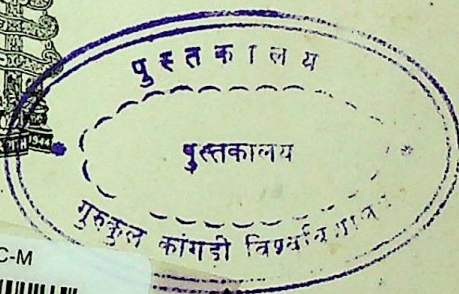 पुस्तकालय
पुस्तकालय
गुरुकुल कांगड़ी विश्वविद्यालय
1944
C-M